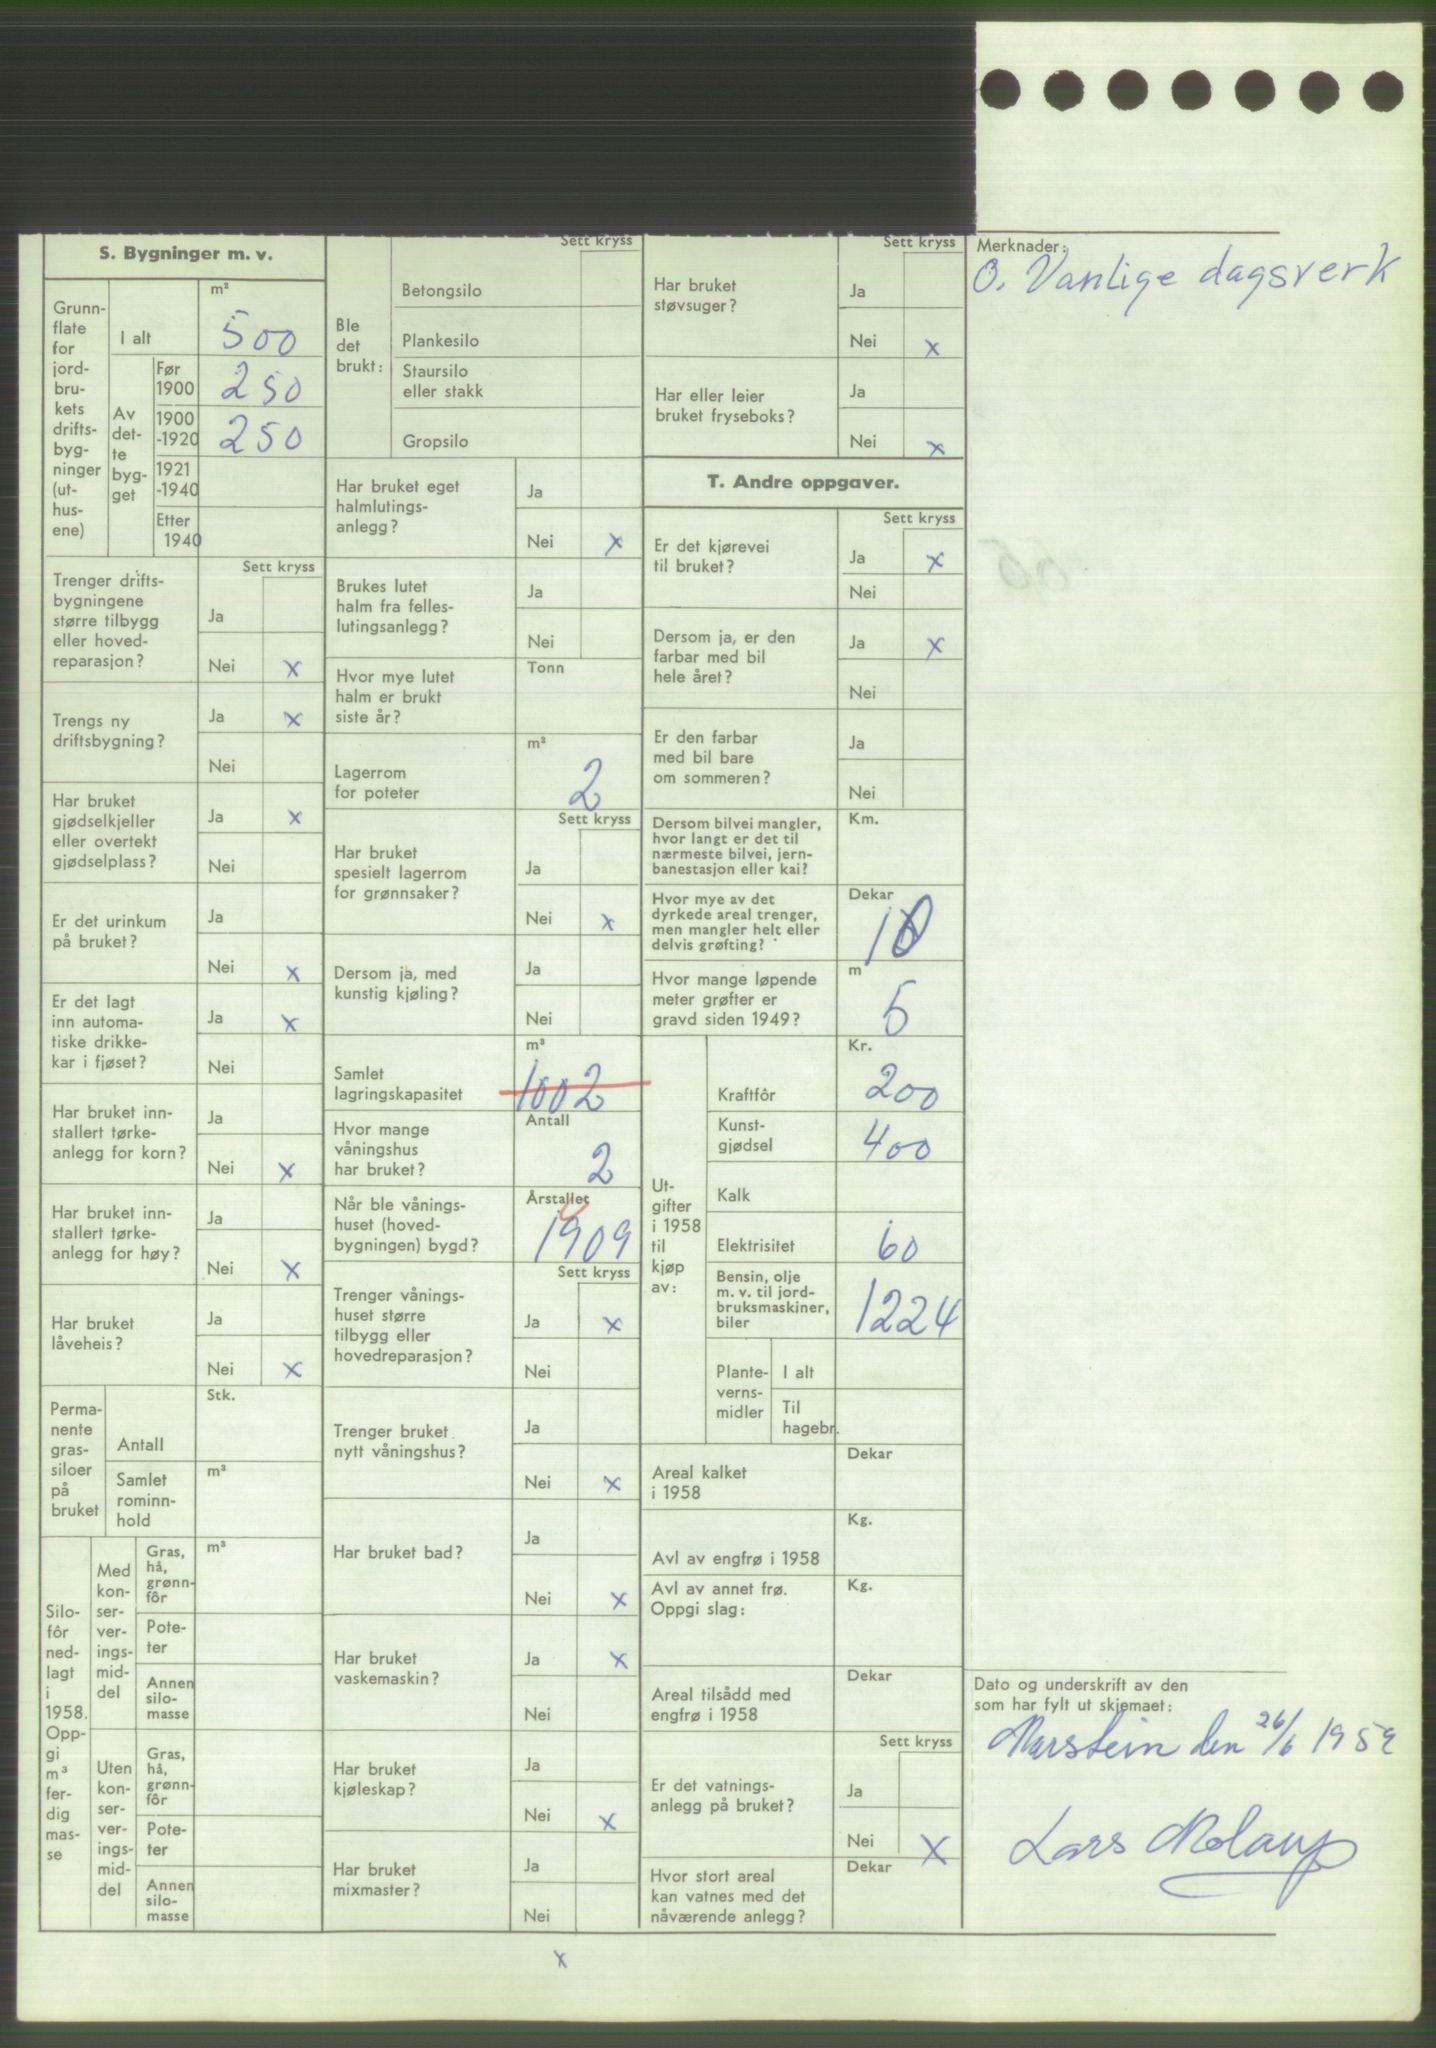 S. Bygninger m. v.
Grunn-
flate
for
jord-
bru-
kets
drifts-
byg-
ninger
(ut-
hus-
ene)
m²
I alt
500
Av
det-
te
byg-
get
Før
1900
250
1900
-1920
250
1921
-1940
Etter
1940
Sett kryss
Trenger drifts-
bygningene
større tilbygg
eller hoved-
reparasjon?
Ja
Nei x
Trengs ny
driftsbygning?
Ja x
Nei
Har bruket
gjødselkjeller
eller overtekt
gjødselplass?
Ja x
Nei
Er det urinkum
på bruket?
Ja
Nei x
Er det lagt
inn automa-
tiske drikke-
kar i fjøset?
Ja x
Nei
Har bruket inn-
stallert tørke-
anlegg for korn?
Ja
Nei x
Har bruket inn-
stallert tørke-
anlegg for høy?
Ja
Nei x
Har bruket
låveheis?
Ja
Nei x
Perma-
nente
gras-
siloer
på
bruket
Stk.
Antall
Samlet
rominn-
hold
m³
Silo-
fôr
ned-
lagt
i
1958.
Opp-
gi
m³
fer-
dig
mas-
se
Med
kon-
ser-
ver-
ings-
mid-
del
Gras,
hå,
grønn-
fôr
m³
Pote-
ter
Annen
silo-
masse
Uten
kon-
ser-
ver-
ings-
mid-
del
Gras,
hå,
grønn-
fôr
Pote-
ter
Annen
silo-
masse
Sett kryss
Ble
det
brukt:
Betongsilo
Plankesilo
Staursilo
eller stakk
Gropsilo
Har bruket eget
halmlutings-
anlegg?
Ja
Nei x
Brukes lutet
halm fra felles-
lutingsanlegg?
Ja
Nei
Hvor mye lutet
halm er brukt
siste år?
Tonn
Lagerrom
for poteter
m²
2
Sett kryss
Har bruket
spesielt lagerrom
for grønnsaker?
Ja
Nei x
Dersom ja, med
kunstig kjøling?
Ja
Nei
Samlet
lagringskapasitet
m³
1002
Hvor mange
våningshus
har bruket?
Antall
2
Når ble vånings-
huset (hoved-
bygningen) bygd?
Årstallet
1909
Sett kryss
Trenger vånings-
huset større
tilbygg eller
hovedreparasjon?
Ja x
Nei
Trenger bruket
nytt våningshus?
Ja
Nei x
Har bruket bad?
Ja
Nei x
Har bruket
vaskemaskin?
Ja x
Nei
Har bruket
kjøleskap?
Ja
Nei x
Har bruket
mixmaster?
Ja
Nei
x
Sett kryss
Har bruket
støvsuger?
Ja
Nei x
Har eller leier
bruket fryseboks?
Ja
Nei x
T. Andre oppgaver.
Sett kryss
Er det kjørevei
til bruket?
Ja x
Nei
Dersom ja, er den
farbar med bil
hele året?
Ja x
Nei
Er den farbar
med bil bare
om sommeren?
Ja
Nei
Dersom bilvei mangler,
hvor langt er det til
nærmeste bilvei, jern-
banestasjon eller kai?
Km.
Hvor mye av det
dyrkede areal trenger,
men mangler helt eller
delvis grøfting?
Dekar
10
Hvor mange løpende
meter grøfter er
gravd siden 1949?
m
5
Ut-
gifter
i 1958
til
kjøp
av:
Kr.
Kraftfôr
200
Kunst-
gjødsel
400
Kalk
Elektrisitet
60
Bensin, olje
m. v. til jord-
bruksmaskiner,
biler
1224
Plante-
verns-
midler
I alt
Til
hagebr.
Areal kalket
i 1958
Dekar
Avl av engfrø i 1958
Kg.
Avl av annet frø.
Oppgi slag:
Kg.
Areal tilsådd med
engfrø i 1958
Dekar
Sett kryss
Er det vatnings-
anlegg på bruket?
Ja
Nei x
Hvor stort areal
kan vatnes med det
nåværende anlegg?
Dekar
Merknader:
O. Vanlige dagsverk
Dato og underskrift av den
som har fylt ut skjemaet:
Marstein den 26/6 1959
Lars